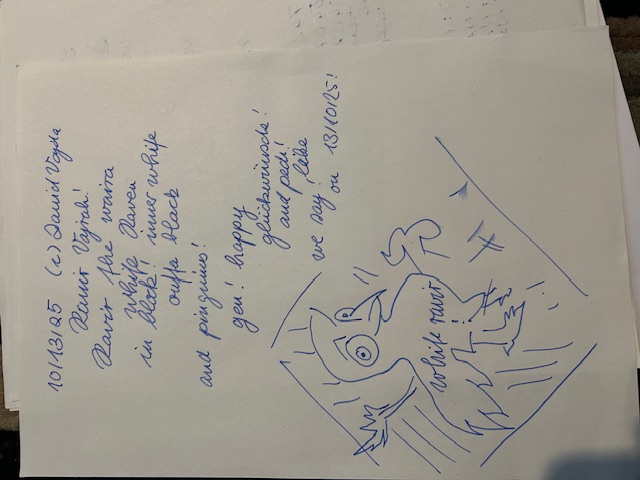 10/13/25 (c) David Vajda
Ravir Vajrah!
Ravir the warra
white Raven
in black! inner white
outta black
and pinguino!
gen! happy
glückwünsche!
and pedi!
we say: like
on 13/10/25!
white ravir
!